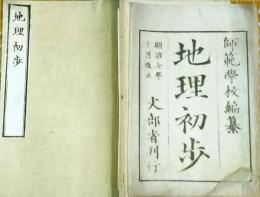 地理初歩
師範學校編纂
地理初步
明治七年
十月改正
文部省刊行